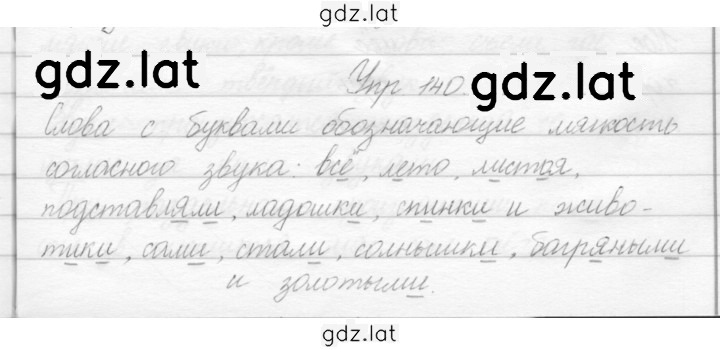 gdz.lat
gdz.lat Упр 140 gdz.lat
Слова с буквами обозначающие мягкость
согласного звука: всё, лето, листая,
подставляли, ладошки, спинки и живо-
тики, сами, стали, солнышки, багряными
и золотыми.
gdz.lat